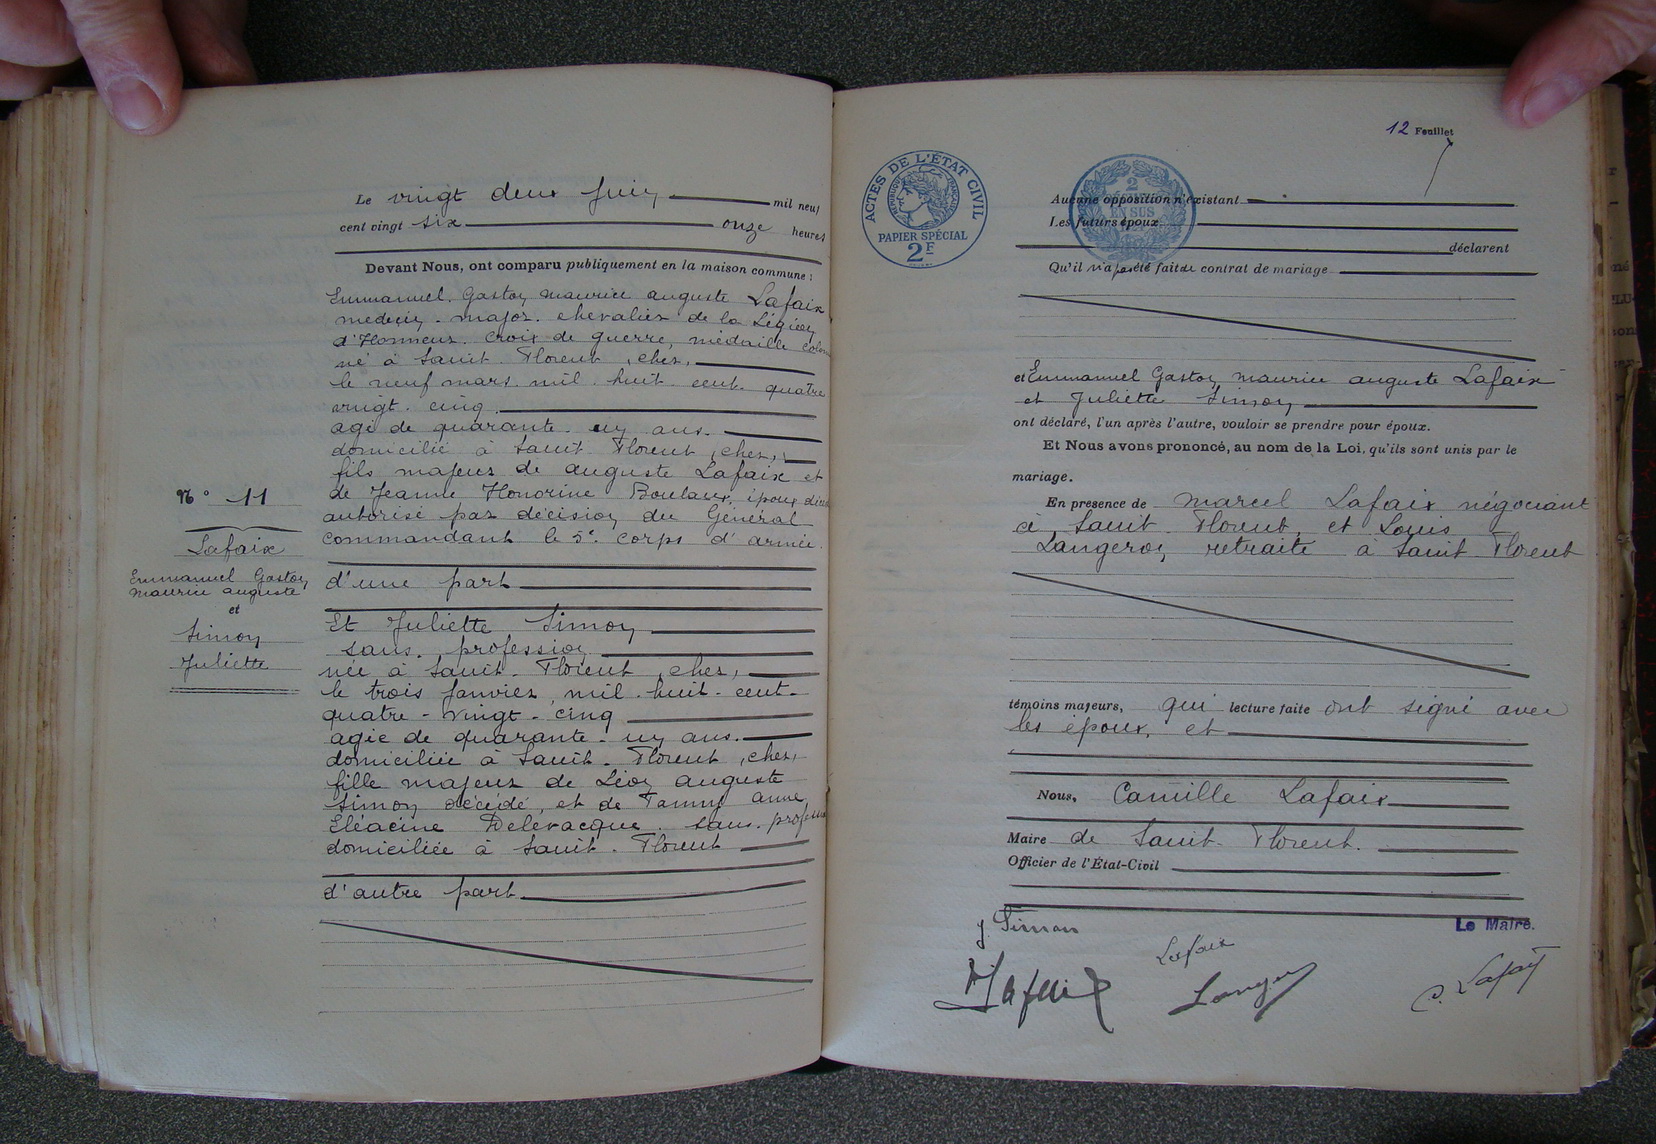 Le vingt deux Juin mil neuf
cent vingt six onze heures
Devant Nous, ont comparu publiquement en la maison commune :
Emmanuel. Gaston Maurice Auguste Lafaix
médecin - major. chevalier de la Légion
d'Honneur. Croix de guerre, médaille
né à Saint Florent, cher,
le neuf mars. mil huit cent quatre
vingt. cinq.
agé de quarante. un ans.
domicilié à Saint Florent, cher,
fils majeur de Auguste Lafaix et
de Jeanne Honorine Boulaux, époux
autorisé par décision du Général
Commandant le 5e Corps d'armée.
d'une part
Et Juliette Simon
sans. profession
née à Saint-Florent, cher,
le trois Janvier mil. huit. cent-
quatre - vingt - cinq
agée de quarante - un ans.
domiciliée à Saint-Florent, cher,
fille majeur de Léon Auguste
Simon décédé, et de Fanny Anne
Eléacine Delévacque. sans.
domiciliée à Saint. Florent
d'autre part
N° 11
Lafaix
Emmanuel Gaston
Maurice Auguste
et
Simon
Juliette
12 Feuillet
ACTES DE L'ÉTAT CIVIL
RÉPUBLIQUE FRANÇAISE
PAPIER SPÉCIAL
2F
2
DÉCIMES
EN SUS
Aucune opposition n'existant
Les futurs époux
déclarent
Qu'il n'a pas été fait de contrat de mariage
et Emmanuel Gaston Maurice Auguste Lafaix
et Juliette Simon
ont déclaré, l'un après l'autre, vouloir se prendre pour époux.
Et Nous avons prononcé, au nom de la Loi, qu'ils sont unis par le
mariage.
En présence de Marcel Lafaix négociant
à Saint Florent, et Louis
Langeron retraité à Saint Florent
témoins majeurs, qui lecture faite ont signé avec
les époux, et
Nous, Camille Lafaix
Maire de Saint-Florent.
Officier de l'État-Civil
Le Maire.
J. Simon
Lafaix
Lafaix
C. Lafaix